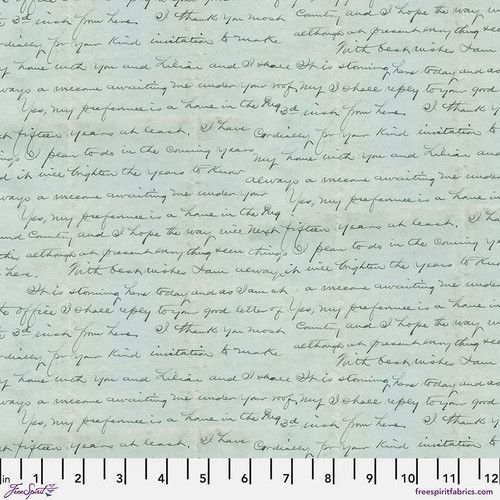 3rd inst from here. I thank you most County, and I hope the way
Cordially for your kind invitation to make although at present every thing
With best wishes I am
my home with you and Lilian and I shall It is storming here today and as
always a welcome awaiting me under your roof, my I shall reply to your good
Yes, my preference is a home in the 3rd inst from here. I thank y
fifteen years at least. I have Cordially for your kind invitation to
things I plan to do in the coming years my home with you and Lilian and
it will brighten the years to know always a welcome awaiting me under
always a welcome awaiting me under your
Yes, my preference is a home in the
Yes, my preference is a home in the
County, and I hope the way will next fifteen years at least. I
although at present every thing seem things I plan to do in the coming
here. With best wishes I am always, it will brighten the years to know
It is storming here today and as I am at, a welcome awaiting me under
office I shall reply to your good letter of Yes, my preference is a home in
3rd inst from here. I thank you most County, and I hope the way
Cordially for your kind invitation to make although at present every thing
With best wishes I am
my home with you and Lilian and I shall It is storming here today and as
always a welcome awaiting me under your roof, my I shall reply to your good
Yes, my preference is a home in the 3rd inst from here. I thank y
fifteen years at least. I have Cordially for your kind invitation to
in 1 2 3 4 5 6 7 8 9 10 11 12
FreeSpirit freespiritfabrics.com